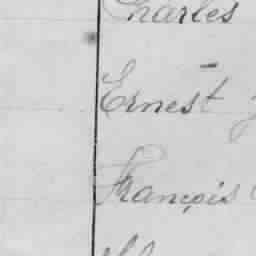 Charles
Ernest
François